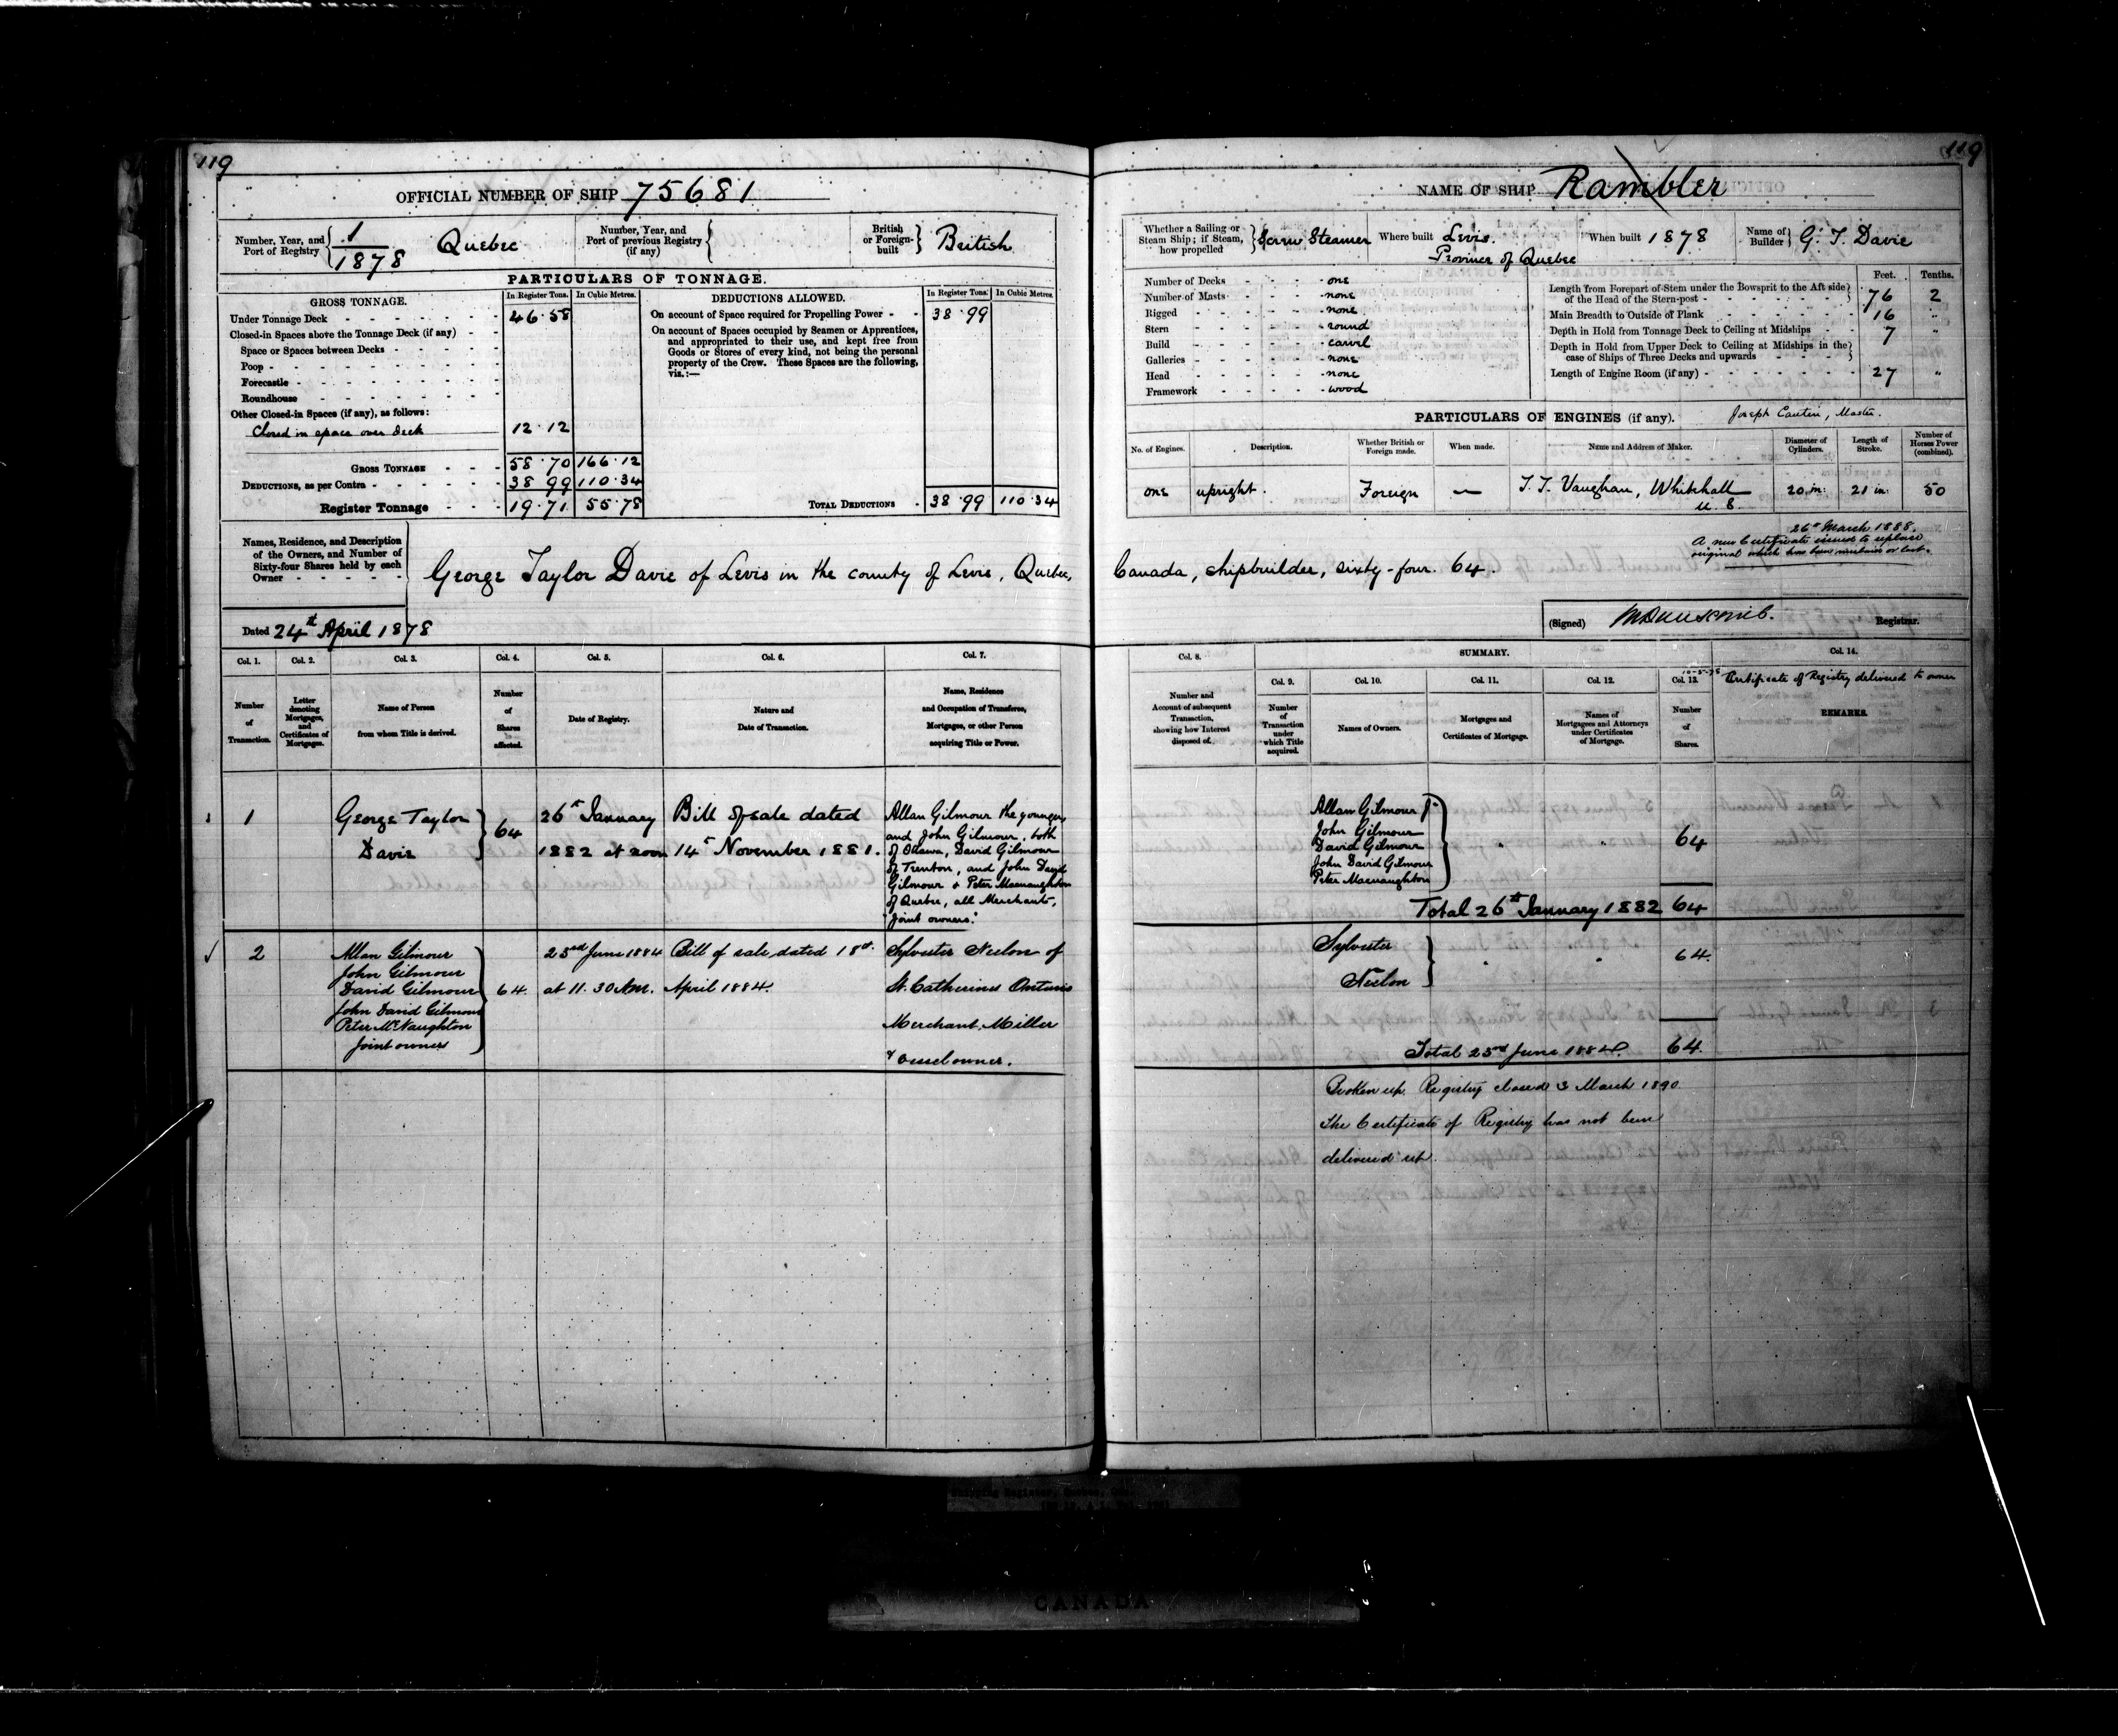 119
OFFICIAL NUMBER OF SHIP 75681
Number, Year, and Port of Registry 1/1878 Quebec
Number, Year, and Port of previous Registry (if any)
British or Foreign-built British
PARTICULARS OF TONNAGE.
GROSS TONNAGE. In Register Tons. In Cubic Metres.
Under Tonnage Deck 46·58
Closed-in Spaces above the Tonnage Deck (if any)
Space or Spaces between Decks
Poop
Forecastle
Roundhouse
Other Closed-in Spaces (if any), as follows:
Closed in space over deck 12·12
GROSS TONNAGE 58·70 166·12
DEDUCTIONS, as per Contra 38 99 110·34
Register Tonnage 19·71 55·78
DEDUCTIONS ALLOWED. In Register Tons. In Cubic Metres.
On account of Space required for Propelling Power 38·99
On account of Spaces occupied by Seamen or Apprentices,
and appropriated to their use, and kept free from
Goods or Stores of every kind, not being the personal
property of the Crew. These Spaces are the following,
viz.:—
TOTAL DEDUCTIONS 38·99 110·34
119
NAME OF SHIP Rambler
Whether a Sailing or Steam Ship; if Steam, how propelled Screw Steamer
Where built Levis. Province of Quebec
When built 1878
Name of Builder G. T. Davie
Number of Decks one
Number of Masts none
Rigged none
Stern round
Build carvel
Galleries none
Head none
Framework wood
Feet. Tenths.
Length from Forepart of Stem under the Bowsprit to the Aft side
of the Head of the Stern-post 76 2
Main Breadth to Outside of Plank 16 "
Depth in Hold from Tonnage Deck to Ceiling at Midships 7 "
Depth in Hold from Upper Deck to Ceiling at Midships in the
case of Ships of Three Decks and upwards
Length of Engine Room (if any) 27 "
PARTICULARS OF ENGINES (if any). Joseph Cantin, Master.
No. of Engines. Description. Whether British or Foreign made. When made. Name and Address of Maker. Diameter of Cylinders. Length of Stroke. Number of Horses Power (combined).
one upright. Foreign — T. T. Vaughan, Whitehall 20 in: 21 in: 50
26th March 1888.
A new Certificate issued to replace
original which has been mislaid or lost.
Names, Residence, and Description
of the Owners, and Number of
Sixty-four Shares held by each
Owner
George Taylor Davie of Levis in the county of Levis, Quebec, Canada, shipbuilder, sixty-four. 64.
Dated 24th April 1878
(Signed) Registrar.
Col. 1. Col. 2. Col. 3. Col. 4. Col. 5. Col. 6. Col. 7.
Number of Transaction.
Letter denoting Mortgages, and Certificates of Mortgages.
Name of Person from whom Title is derived.
Number of Shares affected.
Date of Registry.
Nature and Date of Transaction.
Name, Residence and Occupation of Transferee, Mortgagee, or other Person acquiring Title or Power.
Col. 8. SUMMARY. Col. 14.
Col. 9. Col. 10. Col. 11. Col. 12. Col. 13.
Number and Account of subsequent Transaction, showing how Interest disposed of.
Number of Transaction under which Title acquired.
Names of Owners.
Mortgages and Certificates of Mortgage.
Names of Mortgagees and Attorneys under Certificates of Mortgage.
Number of Shares.
Certificate of Registry delivered to owner
REMARKS.
1
George Taylor
Davie
64
26th January
1882 at noon
Bill of sale dated
14th November 1881.
Allan Gilmour the younger
and John Gilmour, both
of Ottawa, David Gilmour
of Trenton, and John David
Gilmour & Peter Macnaughton
of Quebec, all Merchants,
"Joint owners."
Allan Gilmour Jr
John Gilmour
David Gilmour
John David Gilmour
Peter Macnaughton
64
Total 26th January 1882 64
2
Allan Gilmour
John Gilmour
David Gilmour
John David Gilmour
Peter McNaughton
Joint owners
64.
23rd June 1884
at 11.30 Am.
Bill of sale dated 18th
April 1884.
Sylvester Neelon of
St. Catherines Ontario
Merchant Miller
& Vessel owner.
Sylvester
Neelon
64.
Total 23rd June 1884. 64.
Broken up. Registry closed 3 March 1890
The Certificate of Registry has not been
delivered up.
CANADA